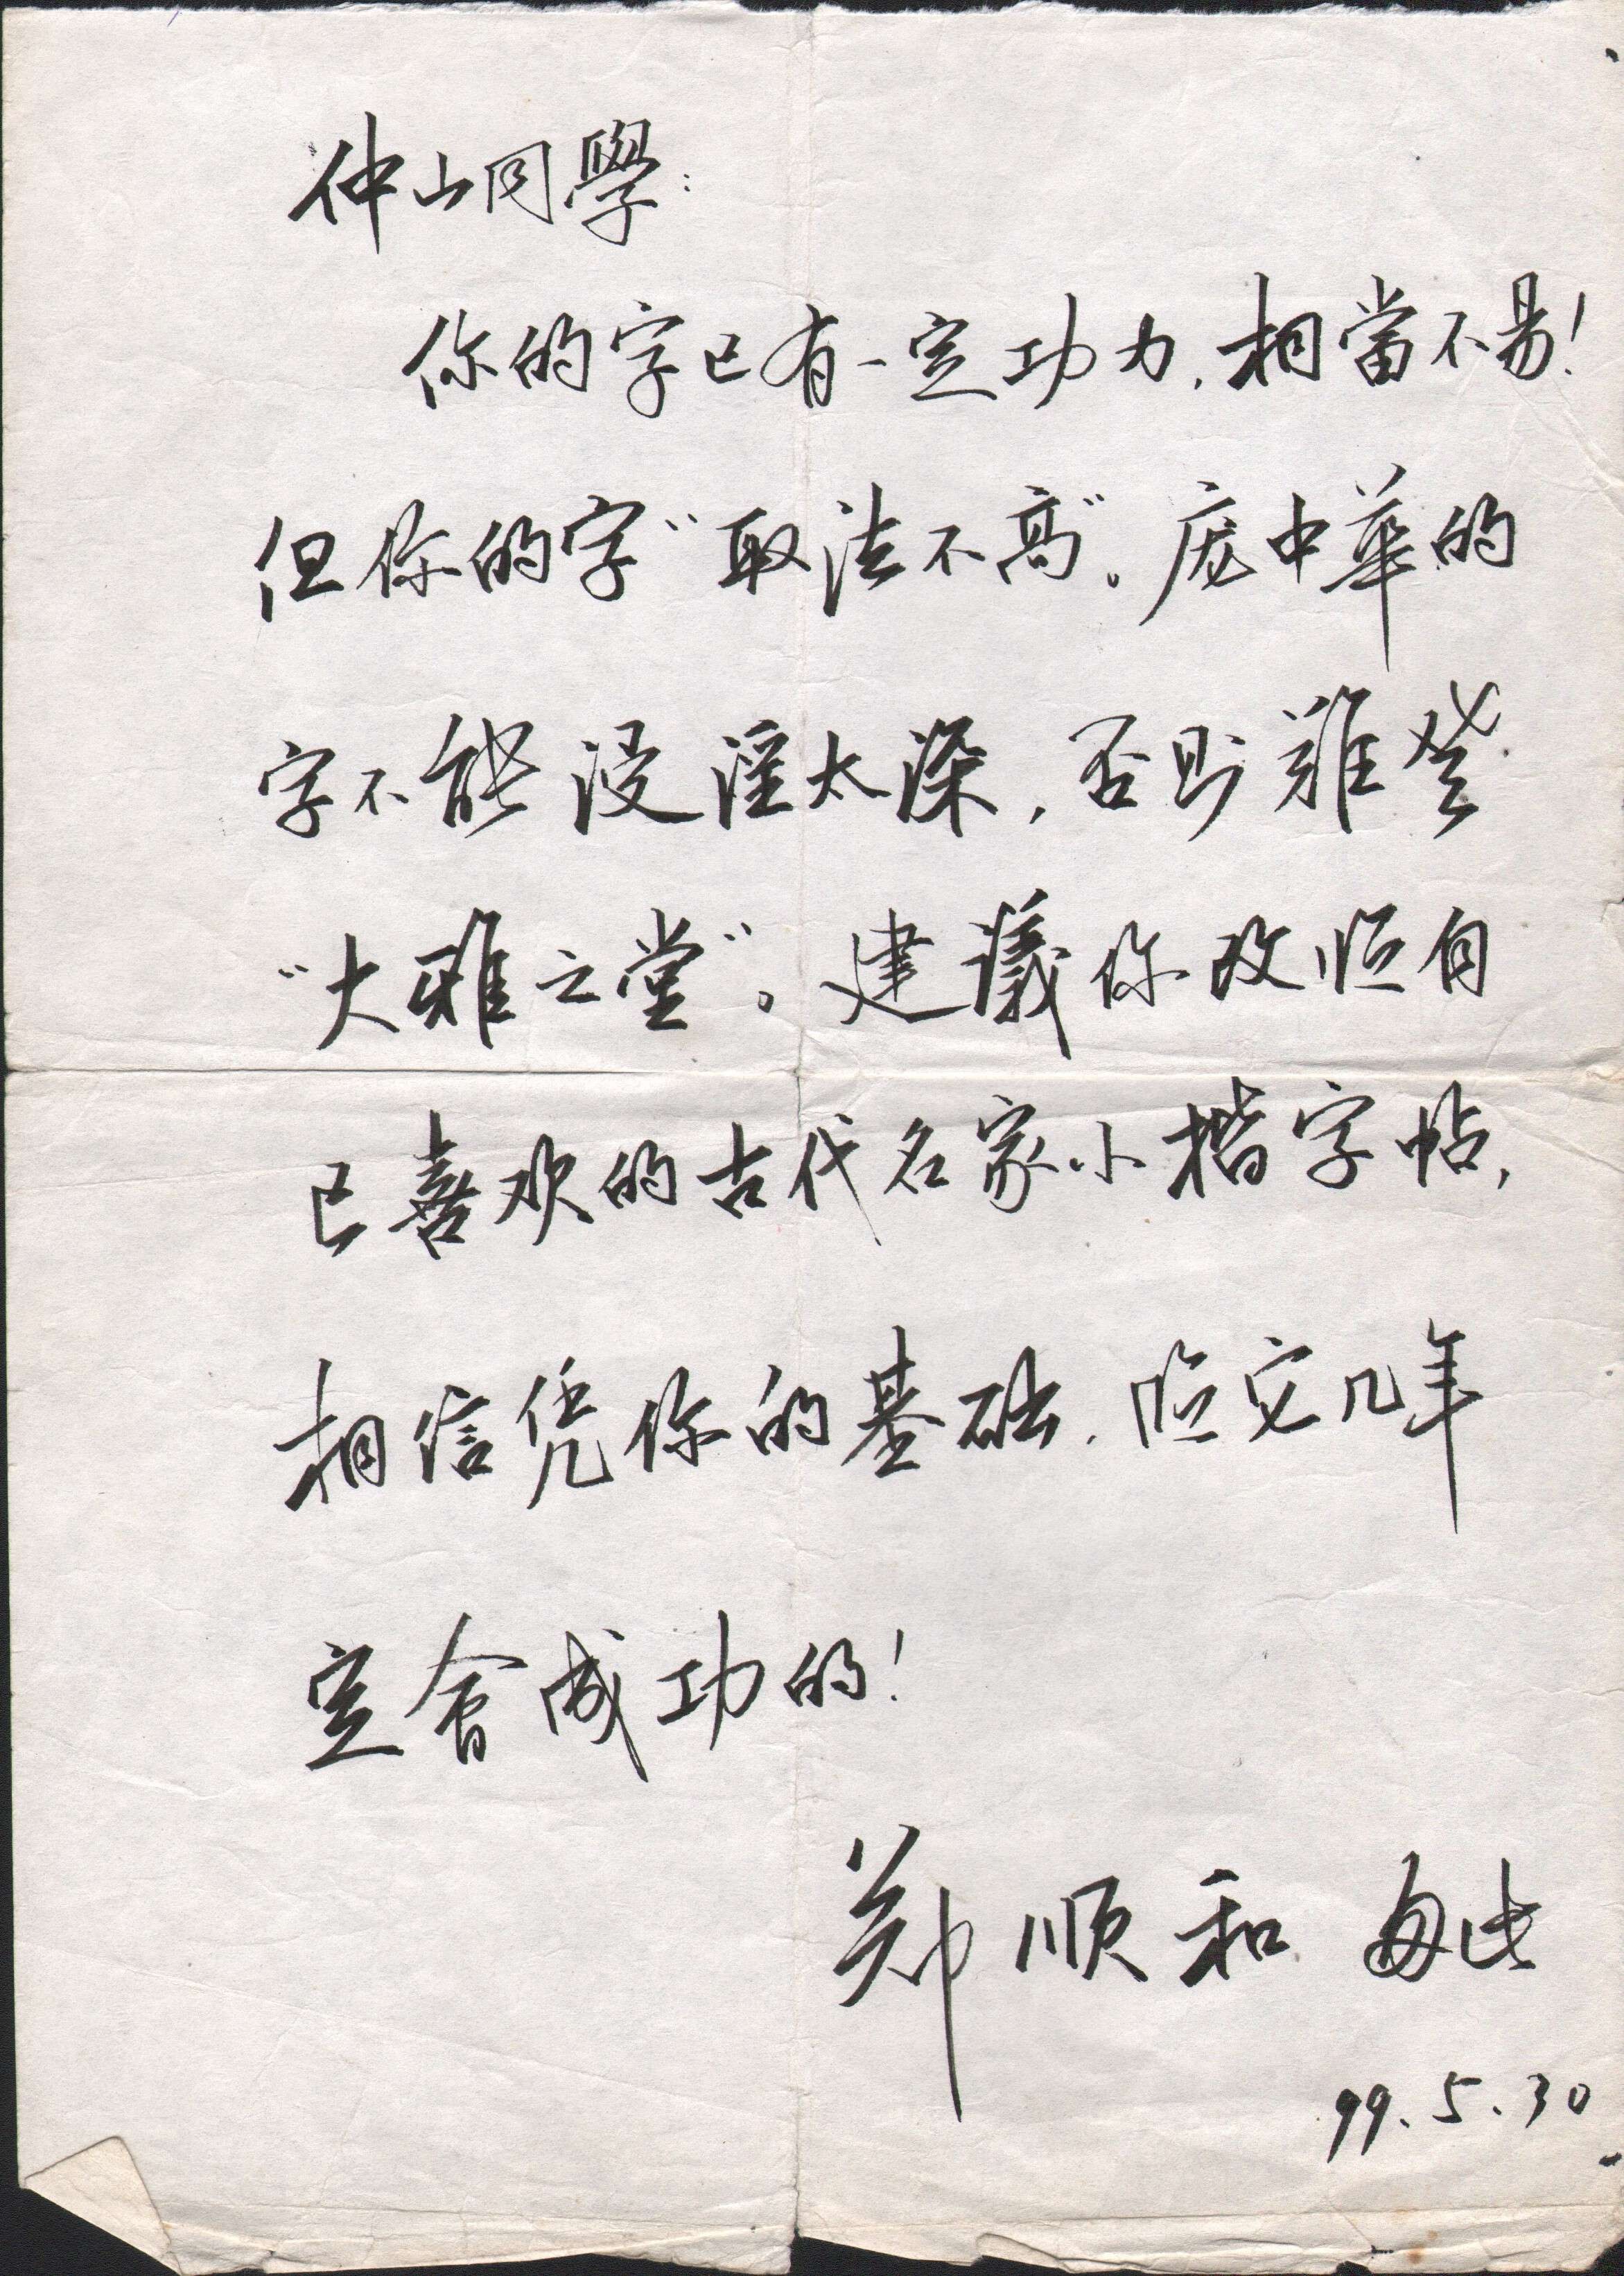 仲山同學：
你的字已有一定功力，相當不易！
但你的字“取法不高”。庞中華的
字不能浸淫太深，否则難登
“大雅之堂”。建議你改临自
己喜欢的古代名家小楷字帖，
相信凭你的基础，临它几年
定會成功的！
郑顺和
99.5.30